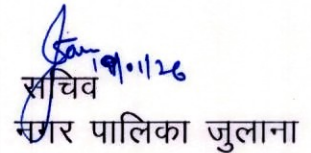 19/01/26
सचिव
नगर पालिका जुलाना